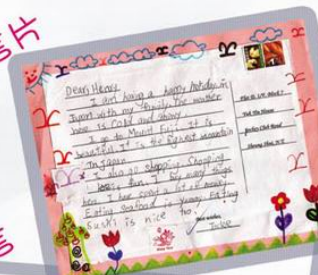 片
Dear Henry
I am having a happy holiday in
Japan with my family. The weather
here is cold and snowy.
I go to Mount Fuji. It is
beautiful. It is the highest mountain
in Japan.
I also go shopping. Shopping
is fun. I buy many things
here. I have spent a lot of money.
Eating seafood is yummy. Eating
Sushi is nice too.
Best wishes,
Flat
Jockey Club Road
Sheung Shui, N.T.